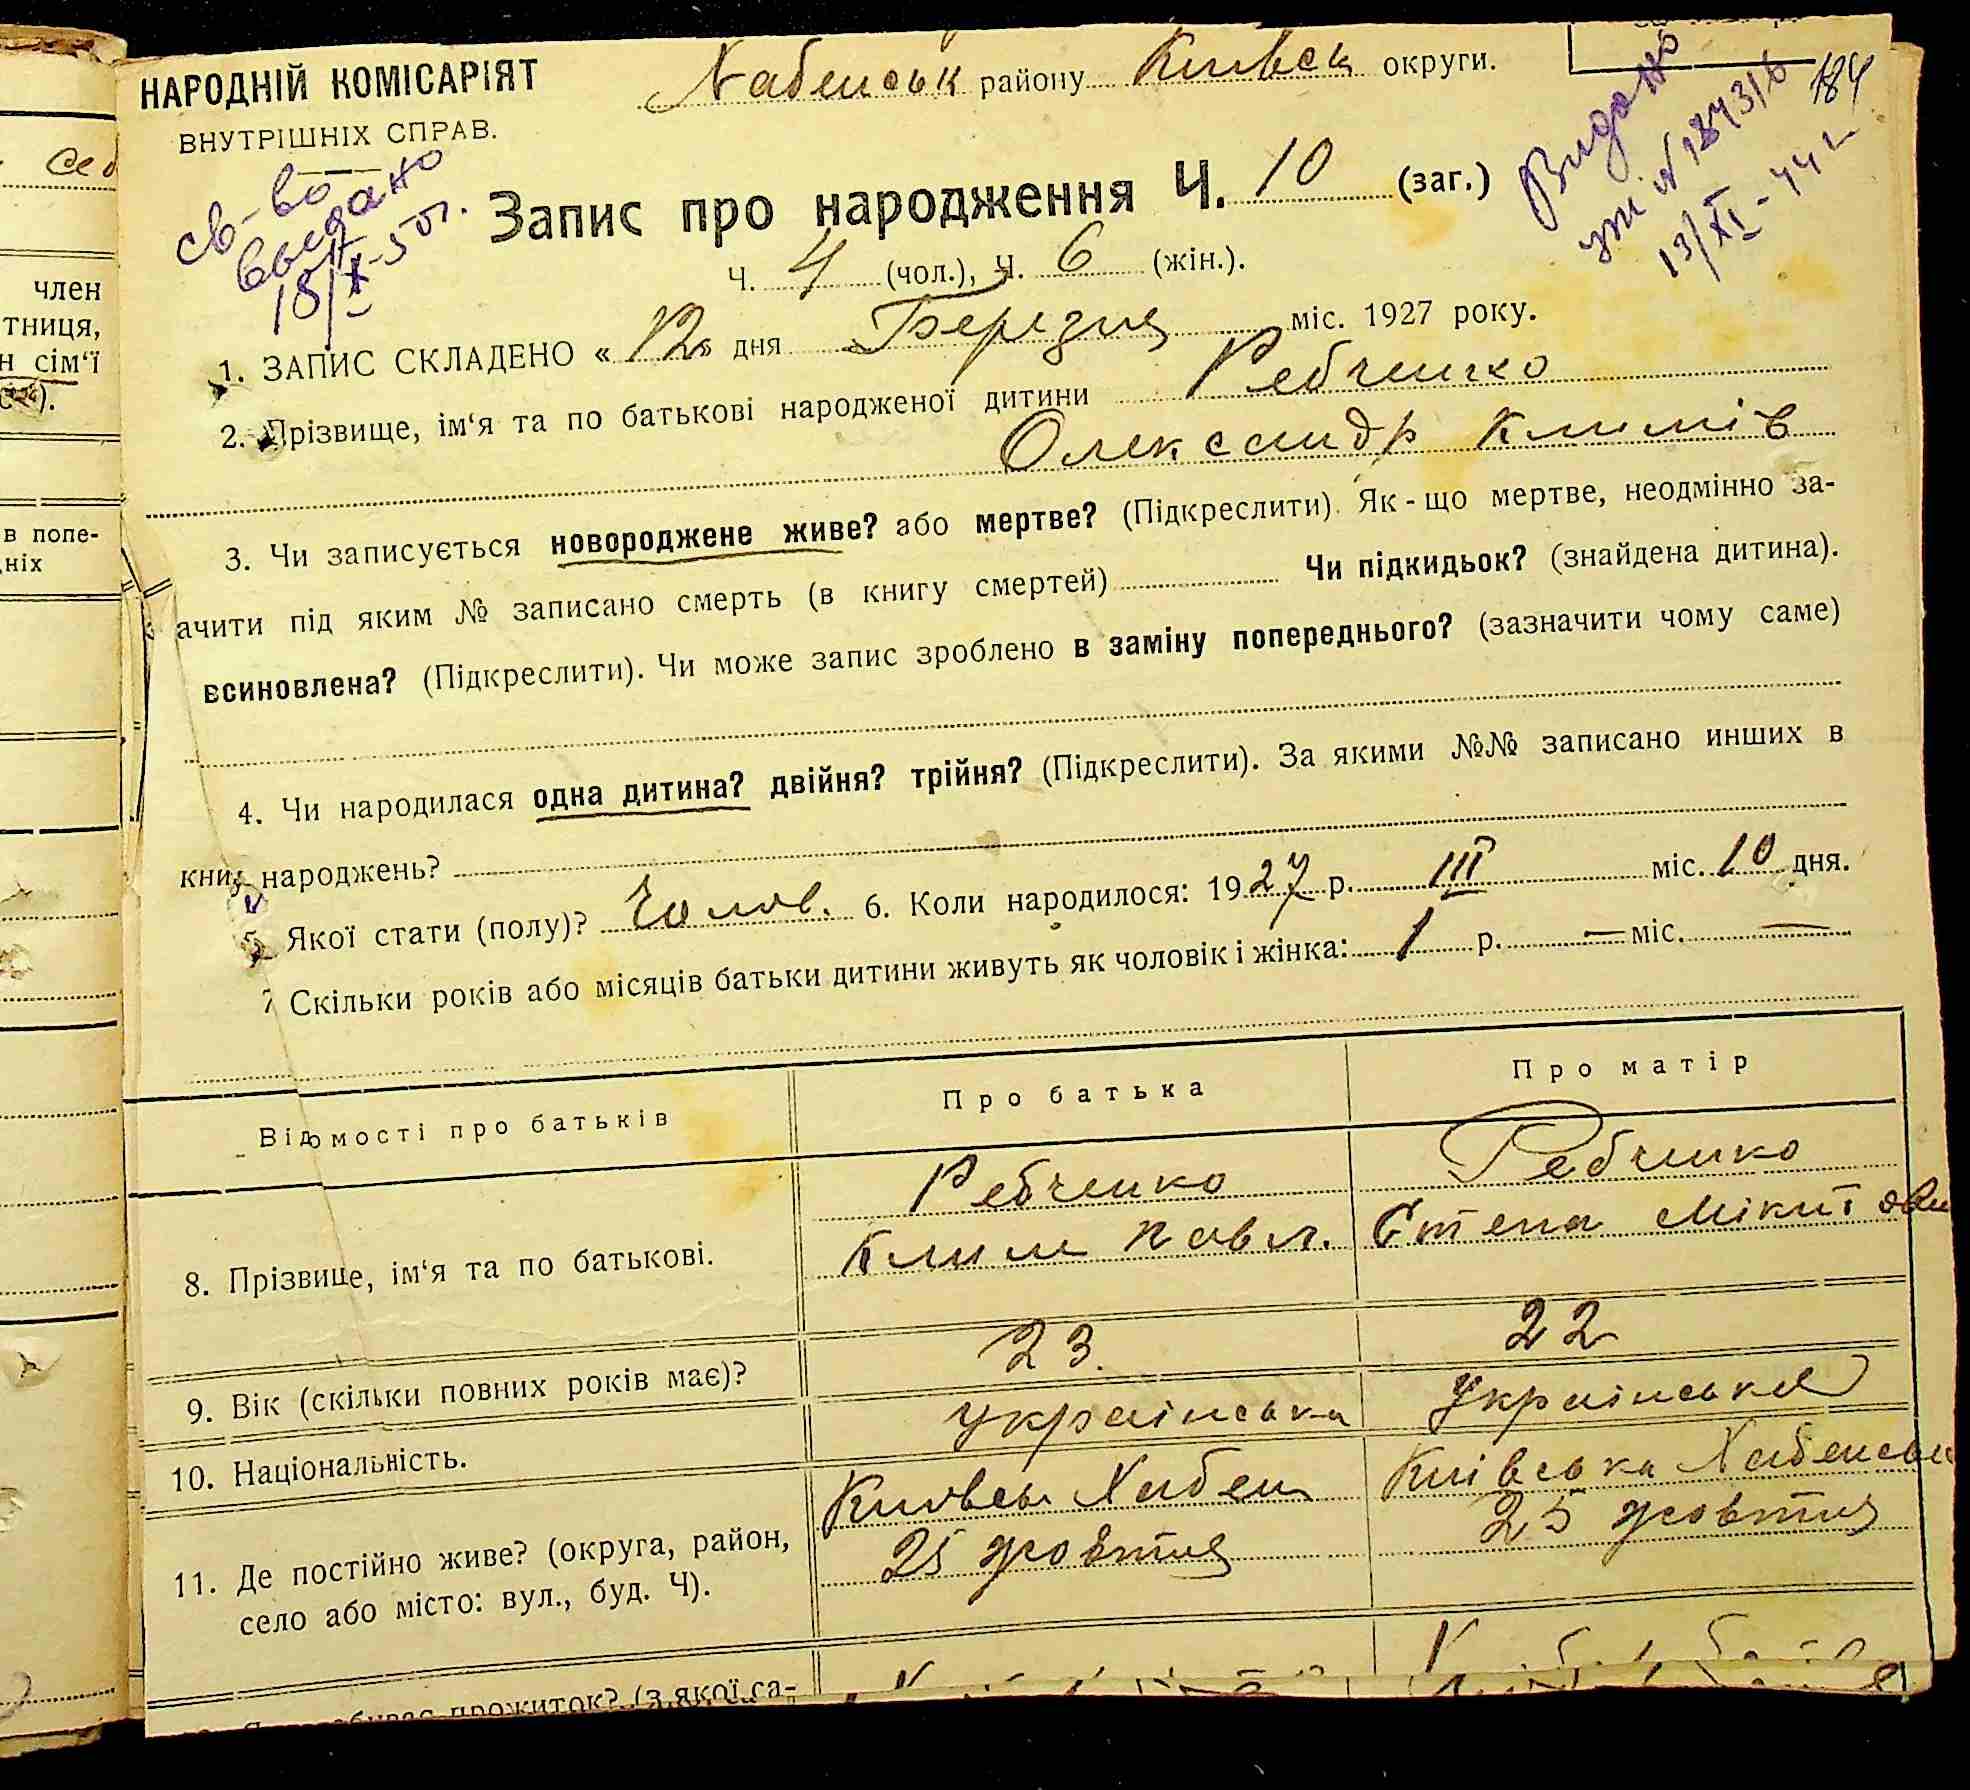 НАРОДНІЙ КОМІСАРІЯТ
ВНУТРІШНІХ СПРАВ.
Хабенськ району Київськ округи.
184
св-во
выдано
18/X-50г.
Видано
13/XI-44 г
Запис про народження Ч. 10 (заг.)
Ч. 4 (чол.), Ч. 6 (жін.).
1. ЗАПИС СКЛАДЕНО « 12 » дня Березня міс. 1927 року.
2. Прізвище, ім‘я та по батькові народженої дитини Ребченко
Олександр Климів
3. Чи записується новороджене живе? або мертве? (Підкреслити). Як-що мертве, неодмінно за-
ачити під яким № записано смерть (в книгу смертей) Чи підкидьок? (знайдена дитина).
всиновлена? (Підкреслити). Чи може запис зроблено в заміну попереднього? (зазначити чому саме)
4. Чи народилася одна дитина? двійня? трійня? (Підкреслити). За якими №№ записано инших в
книг народжень?
5. Якої стати (полу)? Чолов. 6. Коли народилося: 1927 р. III міс. 10 дня.
7 Скільки років або місяців батьки дитини живуть як чоловік і жінка: 1 р. — міс. —
Відомості про батьків
Про батька
Про матір
8. Прізвище, ім‘я та по батькові.
Ребченко
Клим Павл.
Ребченко
Степа Мікит
9. Вік (скільки повних років має)?
23.
22
10. Національність.
українська
Українська
11. Де постійно живе? (округа, район,
село або місто: вул., буд. Ч).
Київськ Хабен
25 жовтня
Київська Хабенськ
25 жовтня
прожиток? (з якої са-
член
тниця,
н сім‘ї
в попе-
дніх